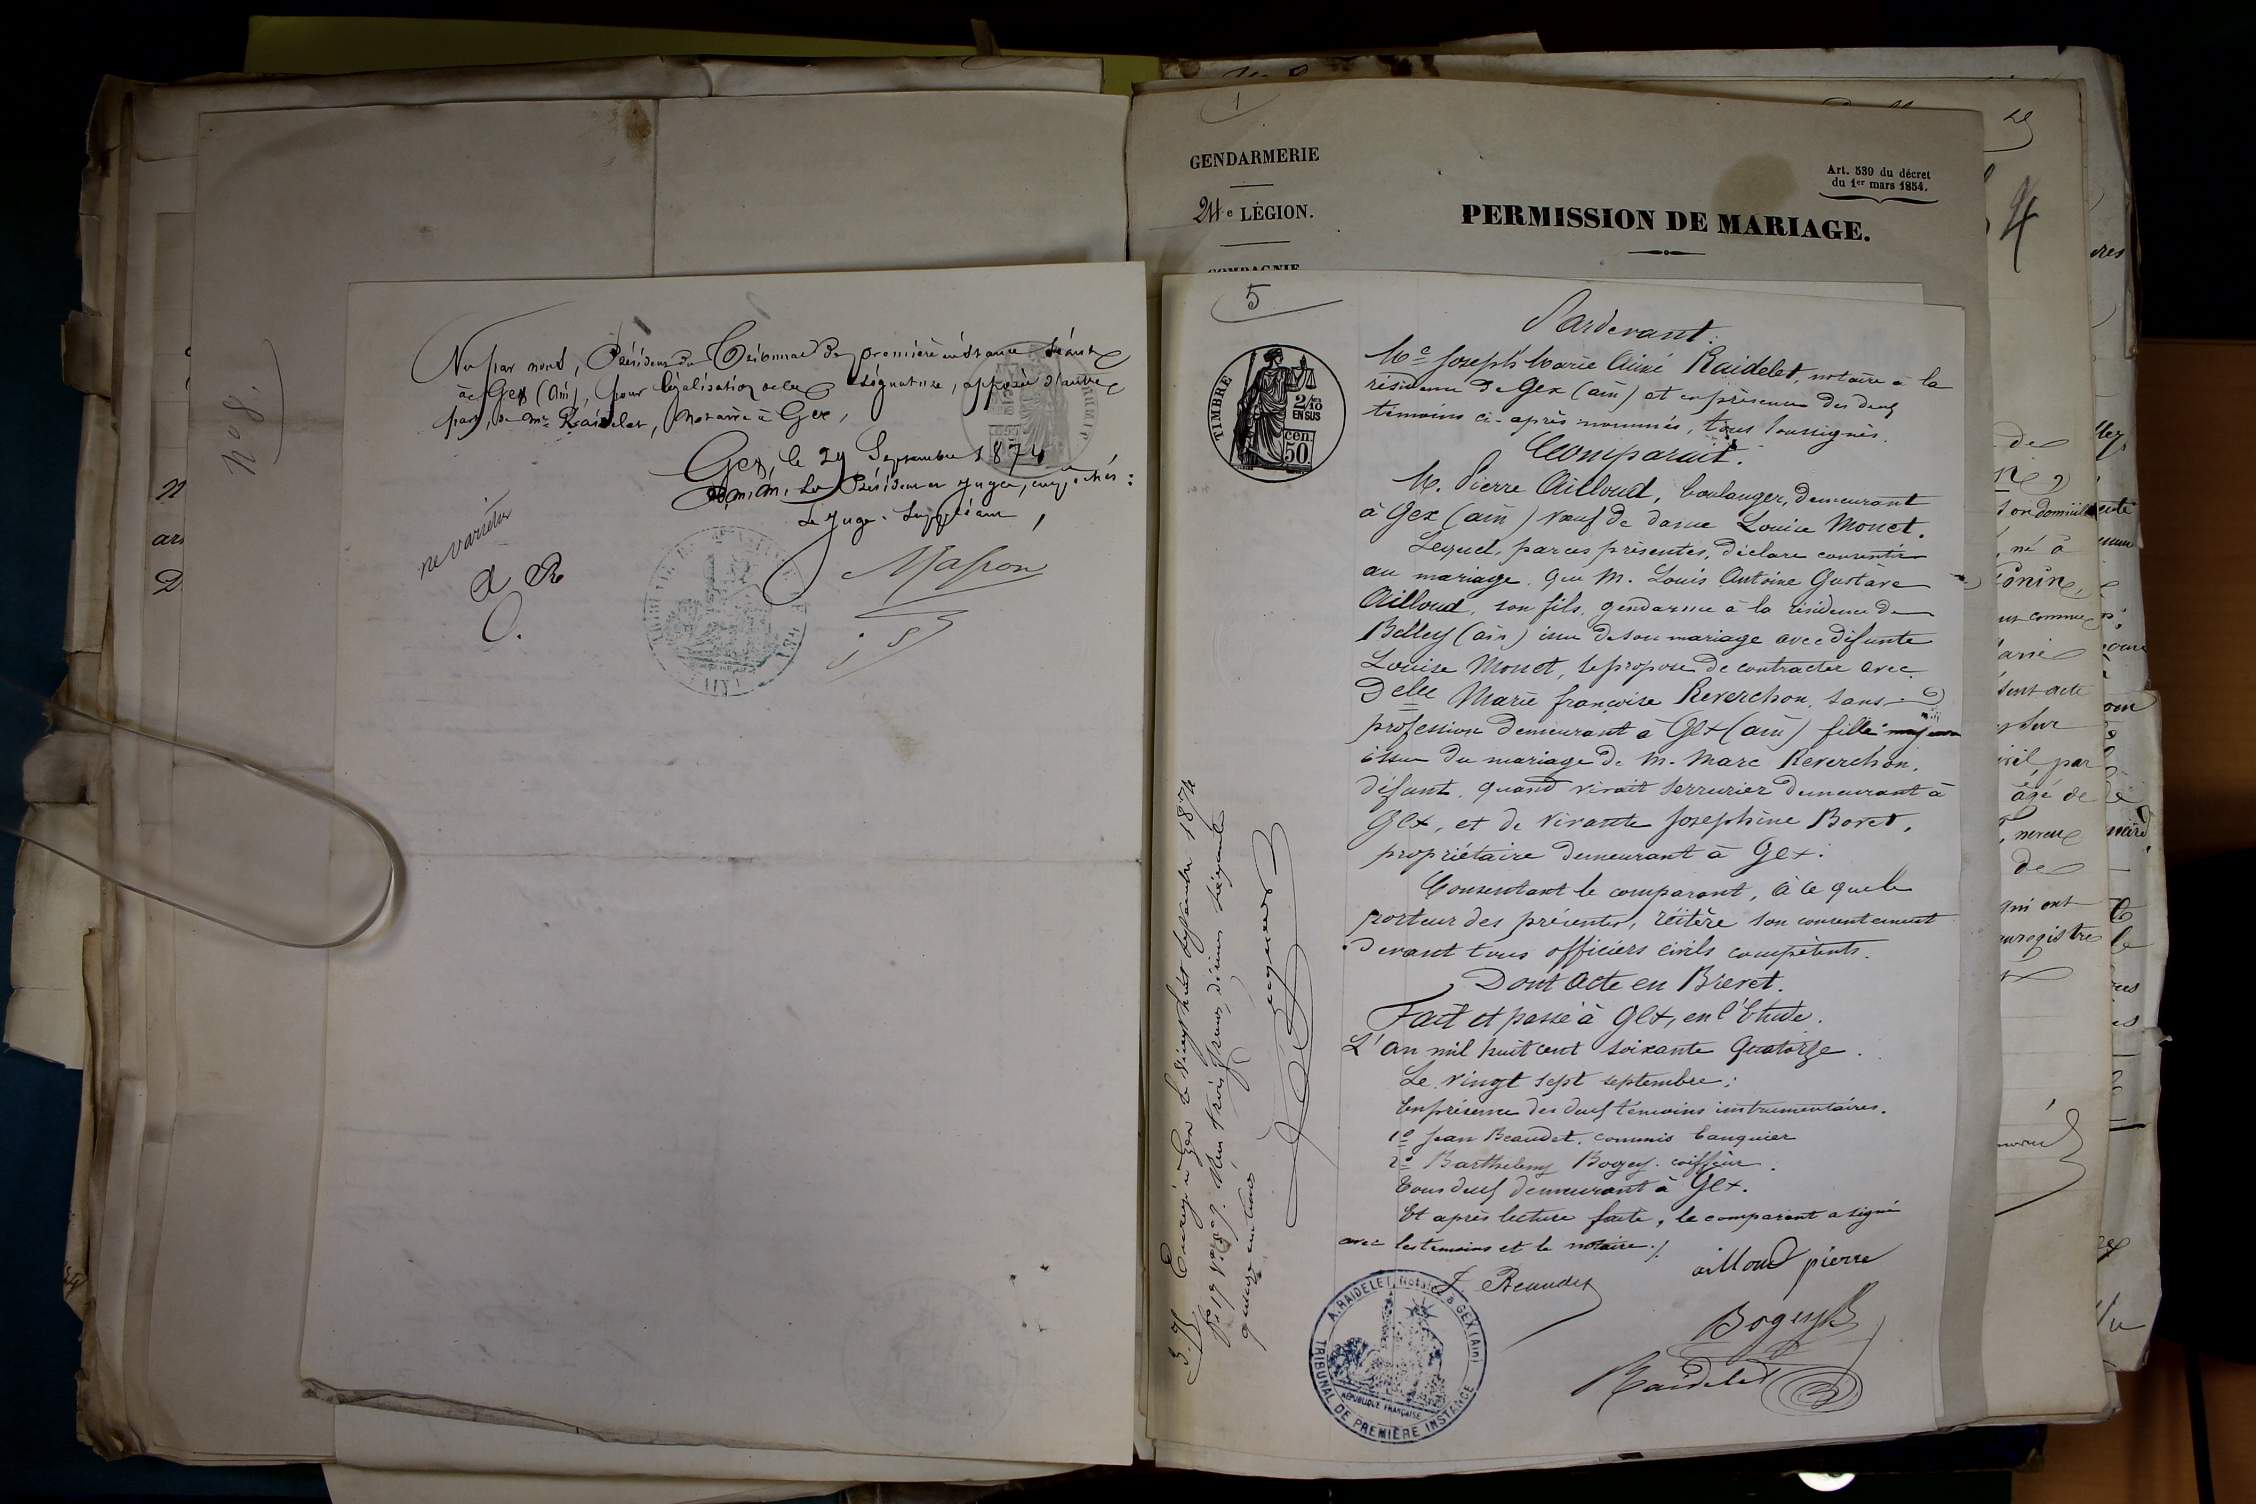 No 8.
Vu par nous, Président du Tribunal de première instance séant
à Gex (Ain), pour légalisation de la signature, apposée d'autre
part, de Me Raidelet, Notaire à Gex,
Gex, le 29 Septembre 1874
M.M. Le Président et Juges, empêchés:
Le Juge-Suppléant,
ne varietur
1
GENDARMERIE
24e LÉGION.
COMPAGNIE
Art. 539 du décret
du 1er mars 1854.
PERMISSION DE MARIAGE.
5
TIMBRE
2/10
EN SUS
50 cen.
Pardevant.
Me Joseph Marie Aimé Raidelet, notaire à la
résidence de Gex (ain) et en présence des deux
témoins ci-après nommés, tous soussignés.
Comparait.
M. Pierre Ailloud, boulanger, demeurant
à Gex (ain) veuf de dame Louise Monet.
Lequel, par ces présentes, déclare consentir
au mariage que M. Louis Antoine Gustave
Ailloud, son fils, gendarme à la résidence de
Belley (ain) issu de son mariage avec défunte
Louise Monet, se propose de contracter avec
Delle Marie françoise Reverchon, sans
profession demeurant à Gex (ain) fille majeure
issue du mariage de M. Marc Reverchon,
défunt, quand vivait serrurier demeurant à
Gex, et de vivante Joséphine Boret,
propriétaire demeurant à Gex.
Consentant le comparant, à ce que le
porteur des présentes, réitère son consentement
devant tous officiers civils compétents.
Dont Acte en Brevet.
Fait et passé à Gex, en l'Etude.
L'an mil huit cent soixante Quatorze.
Le vingt sept septembre;
En présence des deux témoins instrumentaires.
1o Jean Beaudet, commis banquier
2o Barthelemy Bogey, coiffeur.
Tous deux demeurant à Gex.
Et après lecture faite, le comparant a signé
avec les témoins et le notaire./.
J. Beaudet
ailloud pierre
Bogey B
Raidelet
A. RAIDELET, Notaire à GEX (Ain)
TRIBUNAL DE PREMIÈRE INSTANCE
RÉPUBLIQUE FRANÇAISE
Enregé à Gex le vingt huit septembre 1874